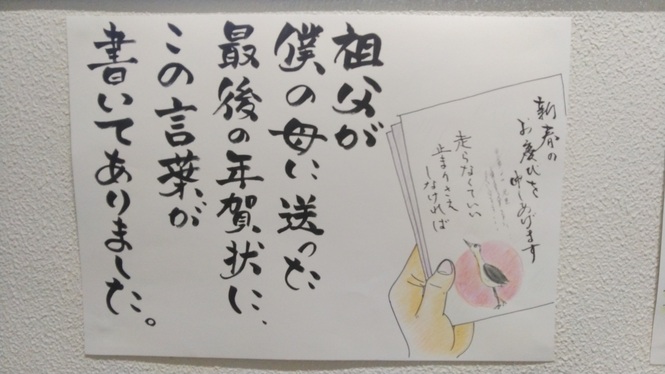 祖父が
僕の母に送った
最後の年賀状に、
この言葉が
書いてありました。
新春の
お慶びを
申しあげます
走らなくていい
止まりさえ
しなければ